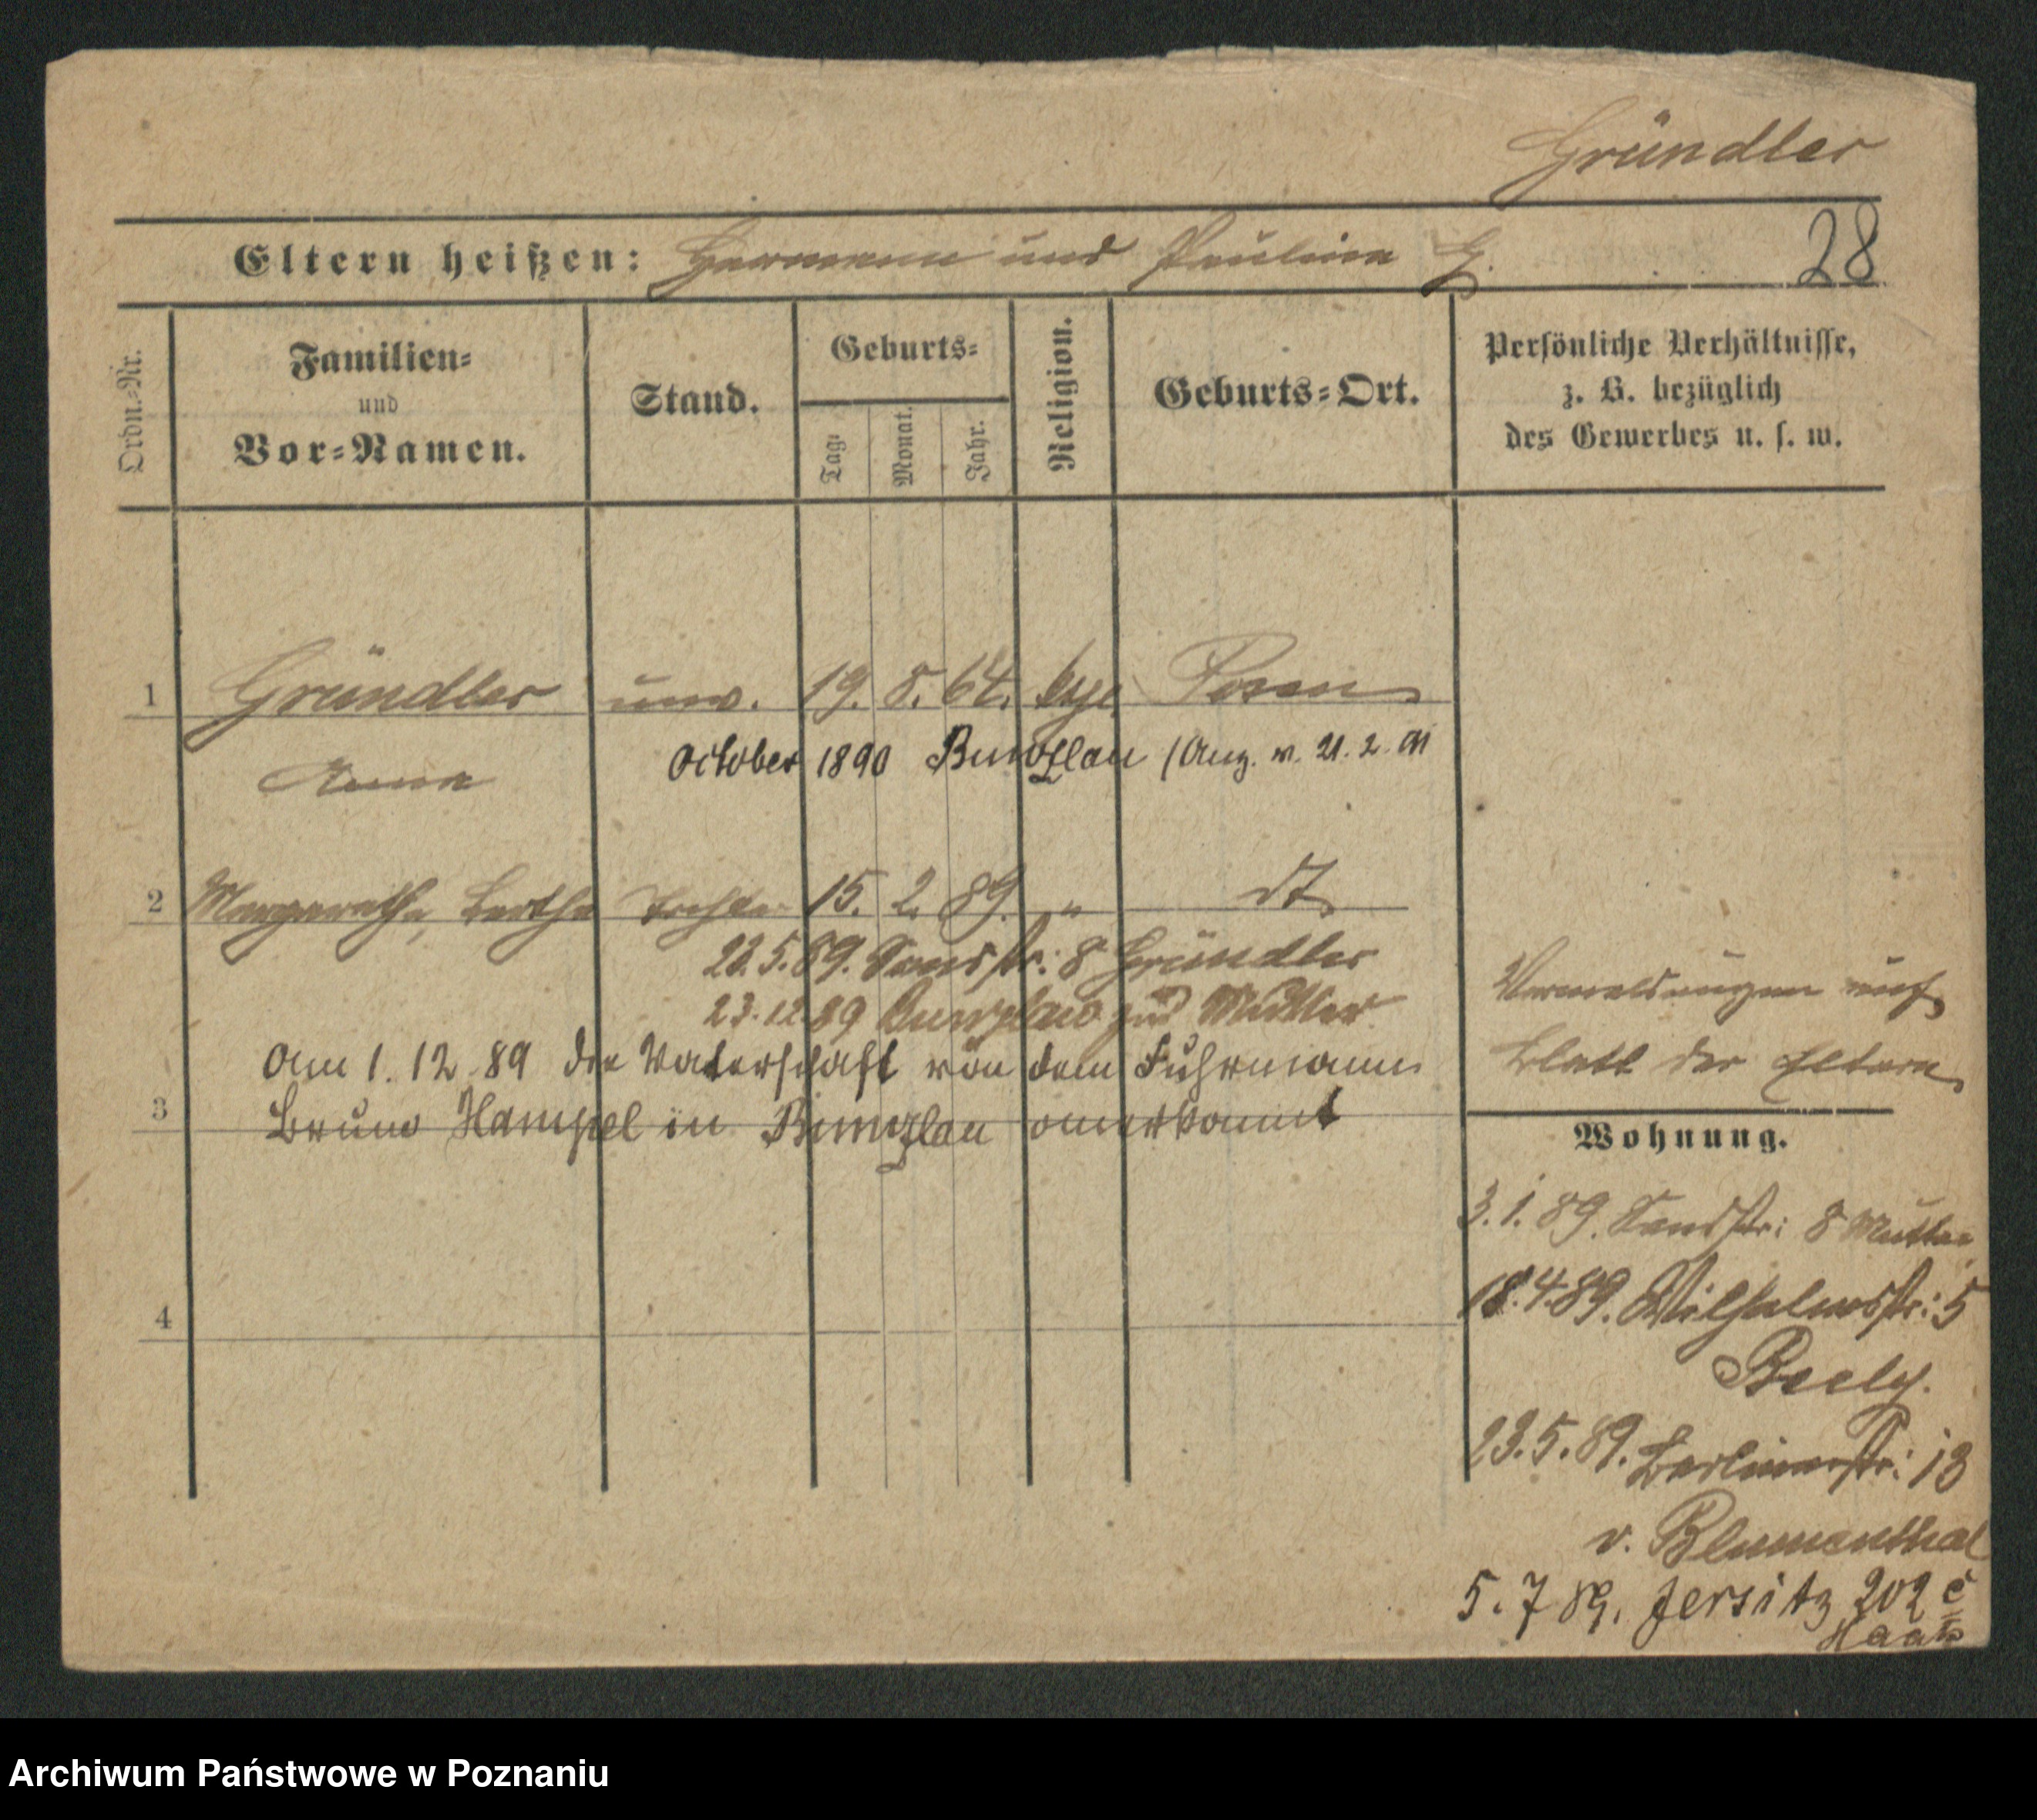 Gründler
Eltern heißen: Hermann und Paulina G.
28
Ordn.-Nr.
Familien-
und
Vor-Namen.
Stand.
Geburts-
Tag.
Monat.
Jahr.
Religion.
Geburts-Ort.
Persönliche Verhältnisse,
z. B. bezüglich
des Gewerbes u. s. w.
1 Gründler unv. 19. 8. 64. Posen
Anna
October 1890 Bunzlau (Anz. v. 21. 2. 91
2 Margarethe, Bertha Tochter 15. 2. 89. " dt
23. 5. 89. Sandstr: 8 Gründler
23.12.89 Bunzlau zur Mutter
Am 1. 12. 89 die Vaterschaft von dem Fuhrmann
3 Bruno Hampel in Bunzlau anerkannt
4
Vermeldungen auf
Blatt der Eltern
Wohnung.
3. 1. 89. Sandstr: 8 Mutter
18. 4. 89. Wilhelmsstr: 5
Beely.
23. 5. 89. Berlinerstr: 13
v. Blumenthal
5. 7 89. Jersitz 202 c
Haas
Archiwum Państwowe w Poznaniu